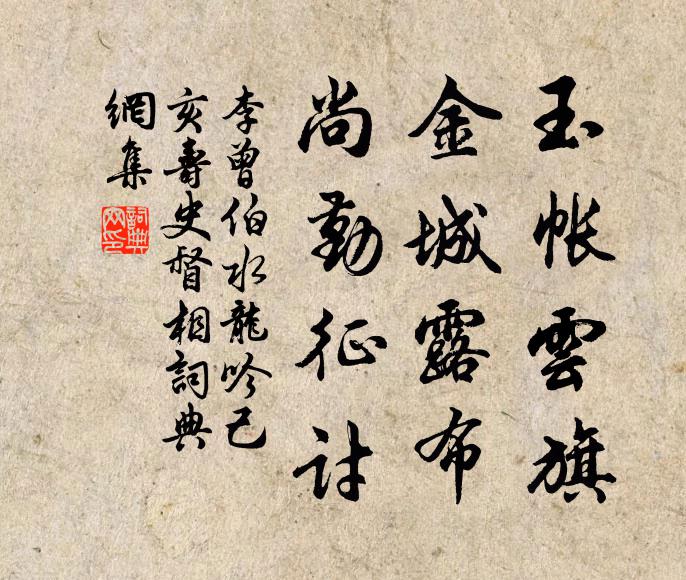 玉帳雲旗
金城露布
尚勤征討
李曾伯水龍吟己
亥壽史督相詞典
網集
詞典網印